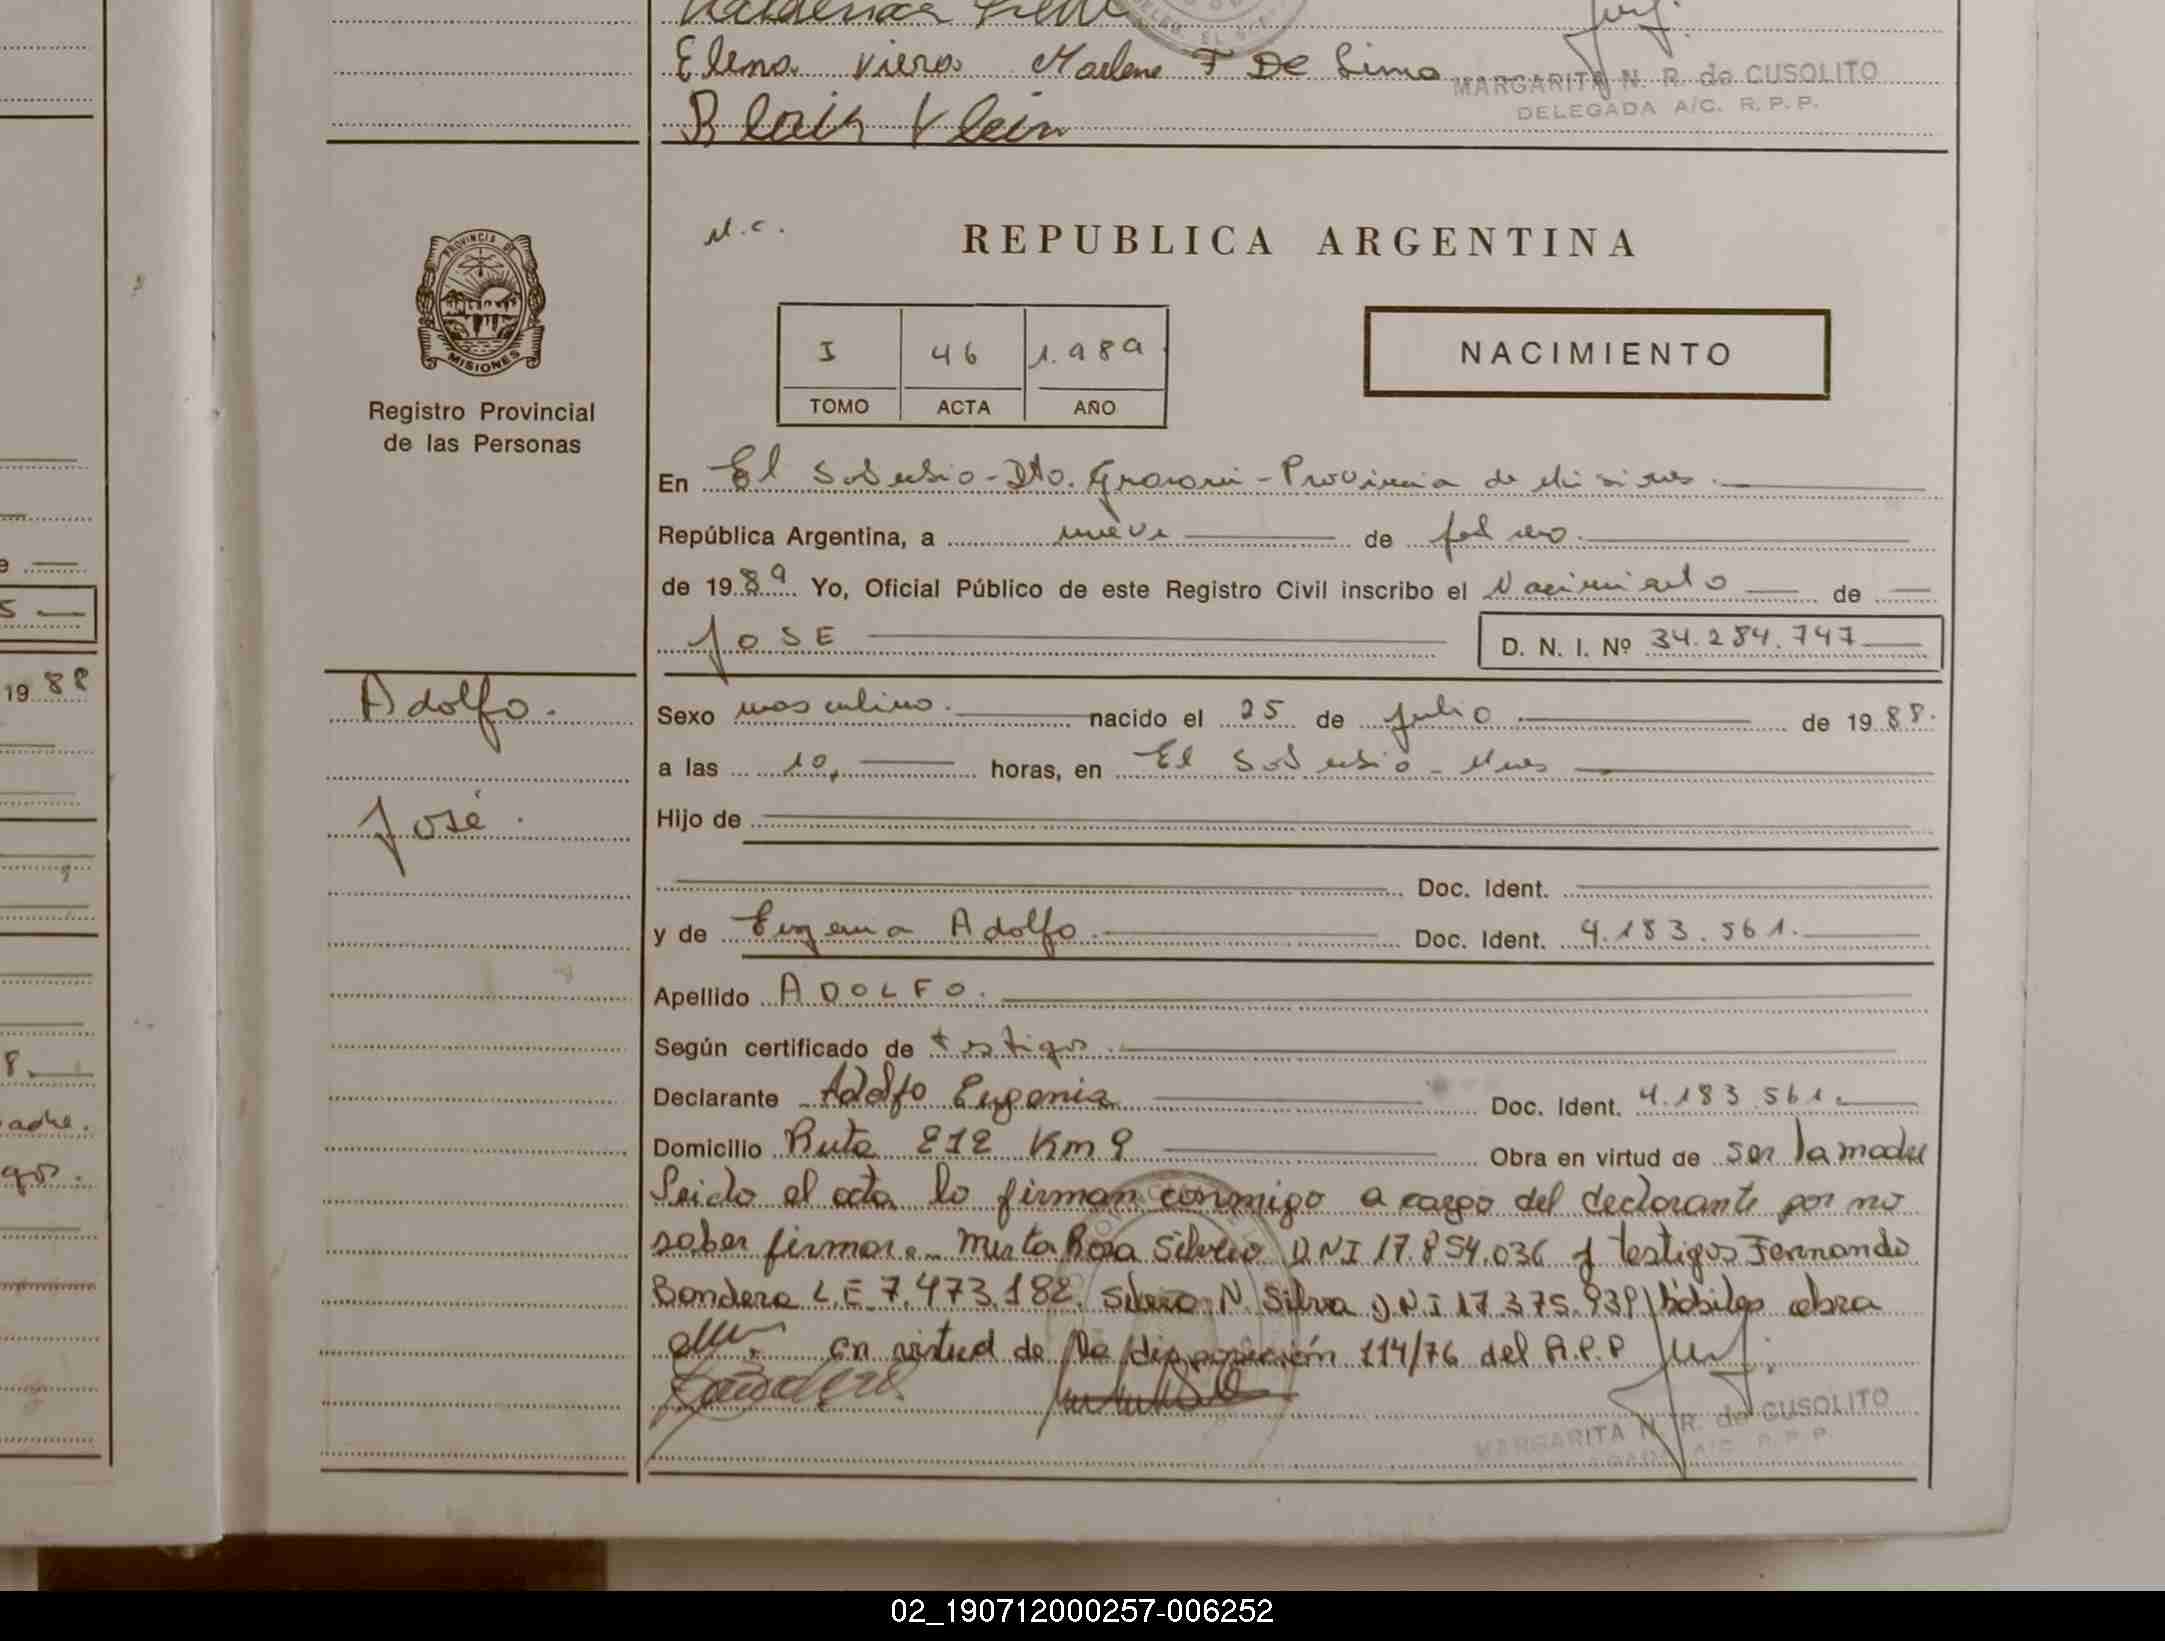 Elena Viera Marlene F De Lima
MARGARITA N. R. de CUSOLITO
DELEGADA A/C. R. P. P.
Klein
PROVINCIA DE
MISIONES
Registro Provincial
de las Personas
REPUBLICA ARGENTINA
I 46 1.989
TOMO ACTA AÑO
NACIMIENTO
En El Soberbio - Dto. Guaraní - Provincia de Misiones.
República Argentina, a nueve de febrero.
de 1989 Yo, Oficial Público de este Registro Civil inscribo el Nacimiento de
JOSE D. N. I. Nº 34.284.747
Adolfo.
José.
Sexo masculino. nacido el 25 de julio de 1988.
a las 10, horas, en El Soberbio - Mnes
Hijo de
Doc. Ident.
y de Eugenia Adolfo. Doc. Ident. 4.183.561.
Apellido ADOLFO.
Según certificado de testigos.
Declarante Adolfo Eugenia Doc. Ident. 4.183.561.
Domicilio Ruta 212 Km 9 Obra en virtud de ser la madre
Leido el acta lo firman conmigo a cargo del declarante por no
saber firmar Mirta Rosa Silverio DNI 17.854.036 y testigos Fernando
Bandera L.E 7.473.182. N. Silva D.N.I 17.375.939 hábiles obra
en virtud de la disposición 114/76 del R.P.P
MARGARITA N. R. de CUSOLITO
A/C. R. P. P.
19 88
5
8.
adre.
02_190712000257-006252